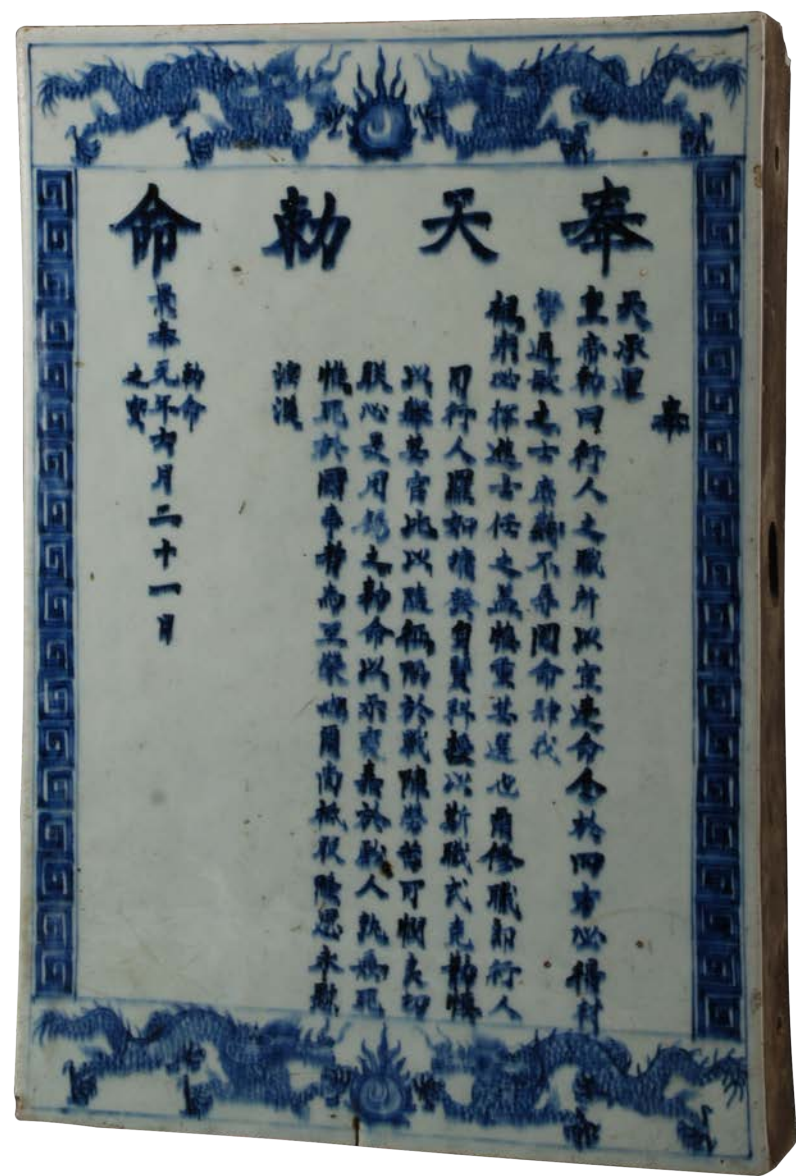 奉天勅命
奉
天承運
皇帝勅曰行人之職所以宣達命令於四方必得材
學通敏之士庶幾不辱國命肆我
祖宗必擇進士任之蓋慎重其選也爾修職郎行人
司行人羅如墉發身賢科擢以斯職式克勤慎
以舉其官比以隨征陷於戰陣勞哲可憫夫切
朕心是用錫之勅命以示褒嘉於戲人孰無死
惟死於國事者為至榮爾尚祗服隆恩永慰
景泰元年七月二十一日
勅命
之寶